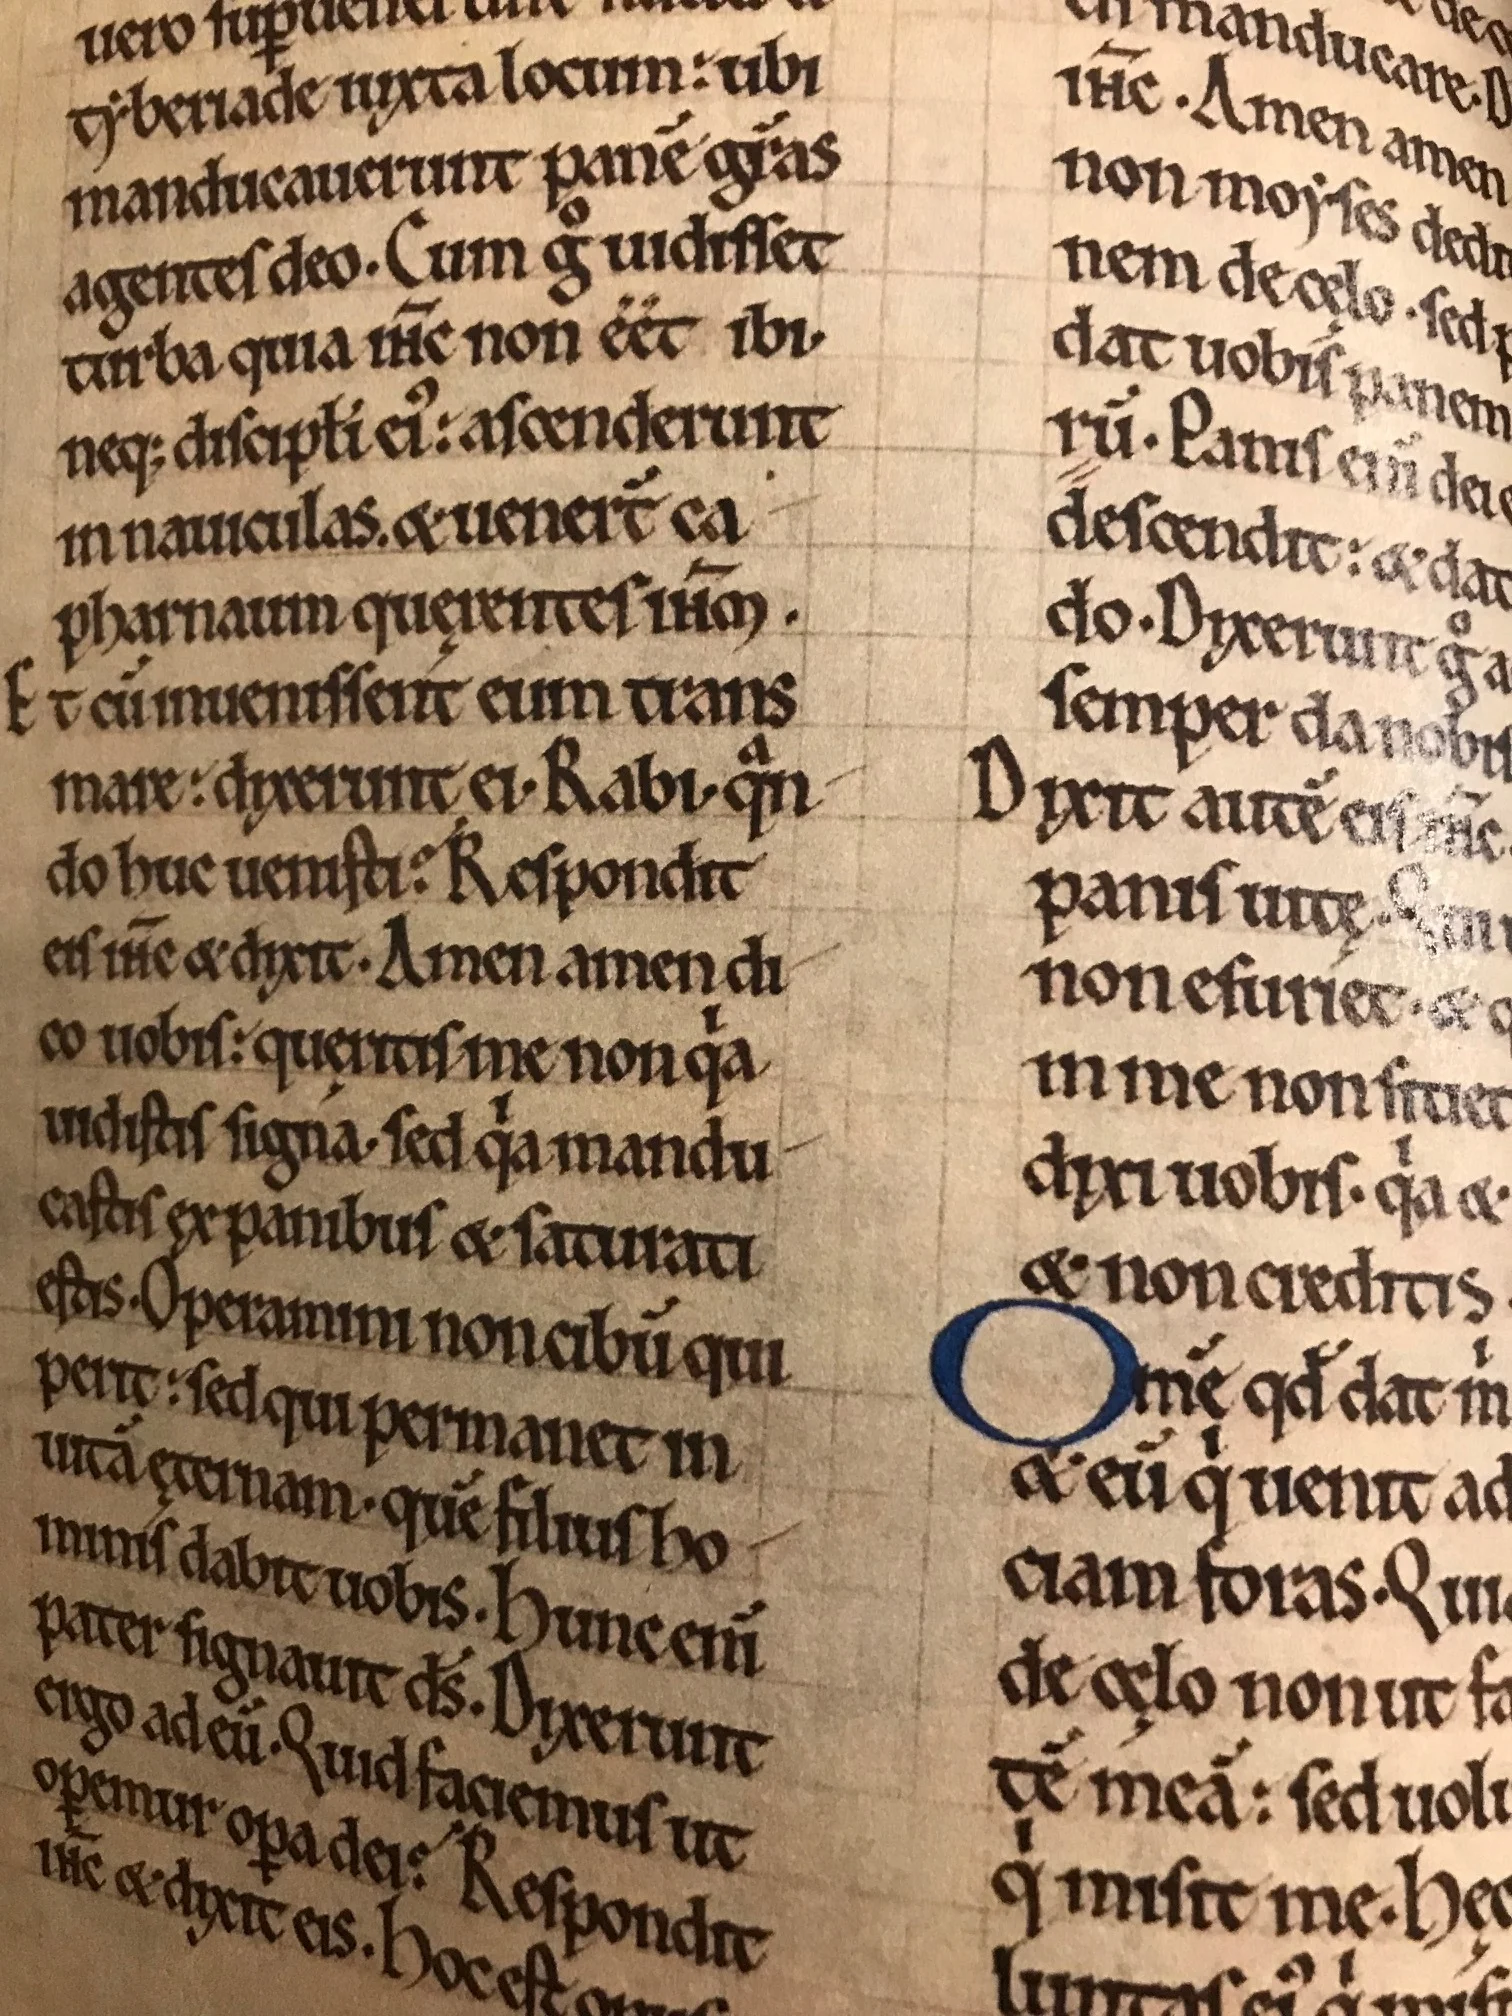 uero sup̲uenerunt naues a
tyberiade iuxta locum: ubi
manducauerunt panē gr̄as
agentes deo. Cum gͦ uidisset
turba quia ih̄c non ēēt ibi.
neq; discipłi ei⁹: ascenderunt
in nauiculas. & uener̄t ca
pharnaum quęrentes ih̄m.
Et cū inuenissent eum trans
mare: dixerunt ei. Rabi. qͣn
do huc uenisti? Respondit
eis ih̄c & dixit. Amen amen di
co uobis: quęritis me non qͥa
uidistis signa. sed qͥa mandu
castis ex panibus & saturati
estis. Operamini non cibū qui
perit: sed qui permanet in
uitā ęternam. quē filius ho
minis dabit uobis. Hunc eni̅
pater signauit d̄s. Dixerunt
ergo ad eū. Quid faciemus ut
op̲emur op̲a dei? Respondit
ih̄c & dixit eis. Hoc est opus
manducare. D
ih̄c. Amen amen
non moyses dedit
nem de cęlo. sed p
dat uobis panem
rū. Panis eni̅ dei e
descendit: & dat
do. Dixerunt gͦ a
semper da nobis
Dixit autē eis ih̄c.
panis uitę. Qui
non esuriet. & q
in me non sitiet
dixi uobis. qͥa &
& non creditis
Omē qd̄ dat m̍
& eū qͥ uenit ad
ciam foras. Quia
de cęlo non ut fa
tē meā: sed uolu
qͥ misit me. Hęc
luntas ei⁹ qͥ mis